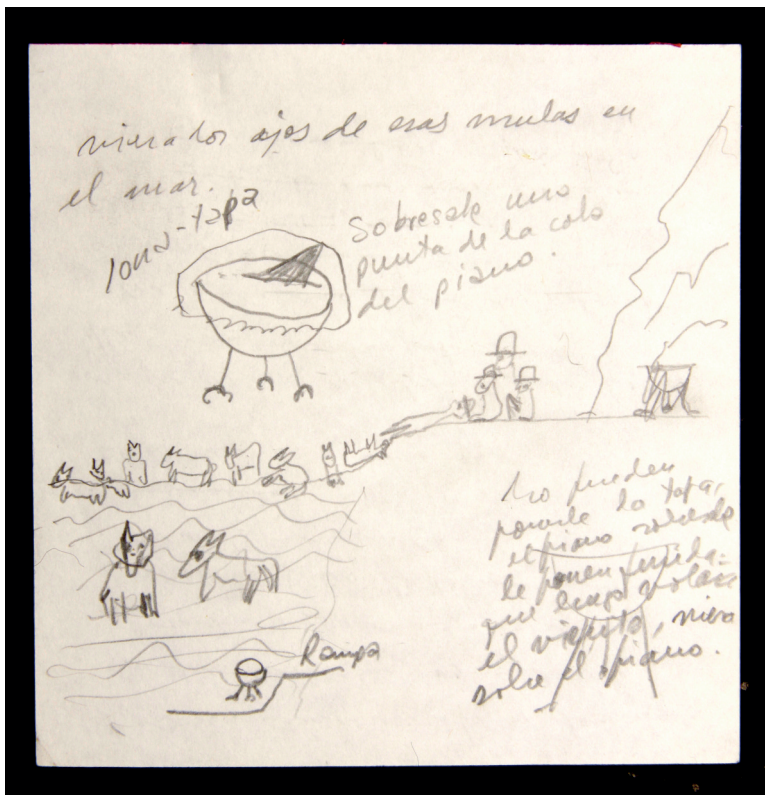 los ojos de esas mulas en
el mar.
lona-tapa
Sobresale una
punta de la cola
del piano.
No pueden
ponerle la tapa,
el piano sobresale
le ponen
que luego
el viento, nieva
sobre el piano.
Rampa